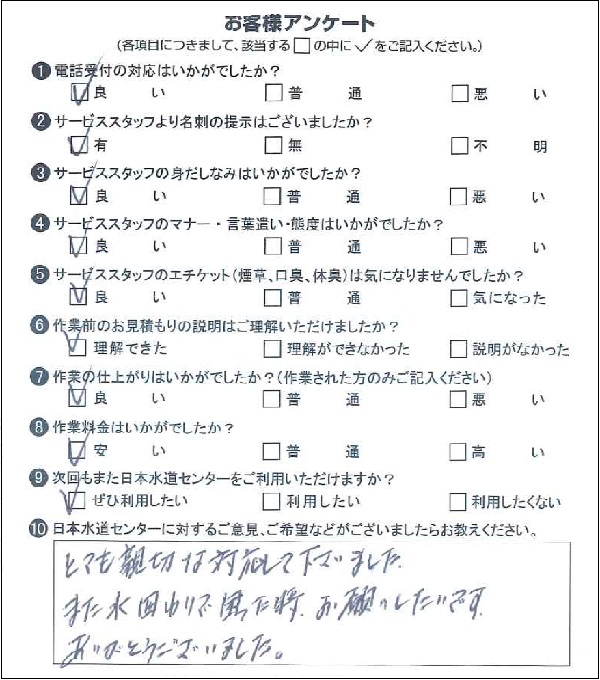 お客様アンケート
(各項目につきまして、該当する□の中に✓をご記入ください。)
❶電話受付の対応はいかがでしたか?
☑良い □普通 □悪い
❷サービススタッフより名刺の提示はございましたか?
☑有 □無 □不明
❸サービススタッフの身だしなみはいかがでしたか?
☑良い □普通 □悪い
❹サービススタッフのマナー・言葉遣い・態度はいかがでしたか?
☑良い □普通 □悪い
❺サービススタッフのエチケット(煙草、口臭、体臭)は気になりませんでしたか?
☑良い □普通 □気になった
❻作業前のお見積もりの説明はご理解いただけましたか?
☑理解できた □理解ができなかった □説明がなかった
❼作業の仕上がりはいかがでしたか?(作業された方のみご記入ください)
☑良い □普通 □悪い
❽作業料金はいかがでしたか?
☑安い □普通 □高い
❾次回もまた日本水道センターをご利用いただけますか?
☑ぜひ利用したい □利用したい □利用したくない
❿日本水道センターに対するご意見、ご希望などがございましたらお教えください。
とても親切な対応して下さいました
また水回りで困った時、お願いしたいです
ありがとうございました。